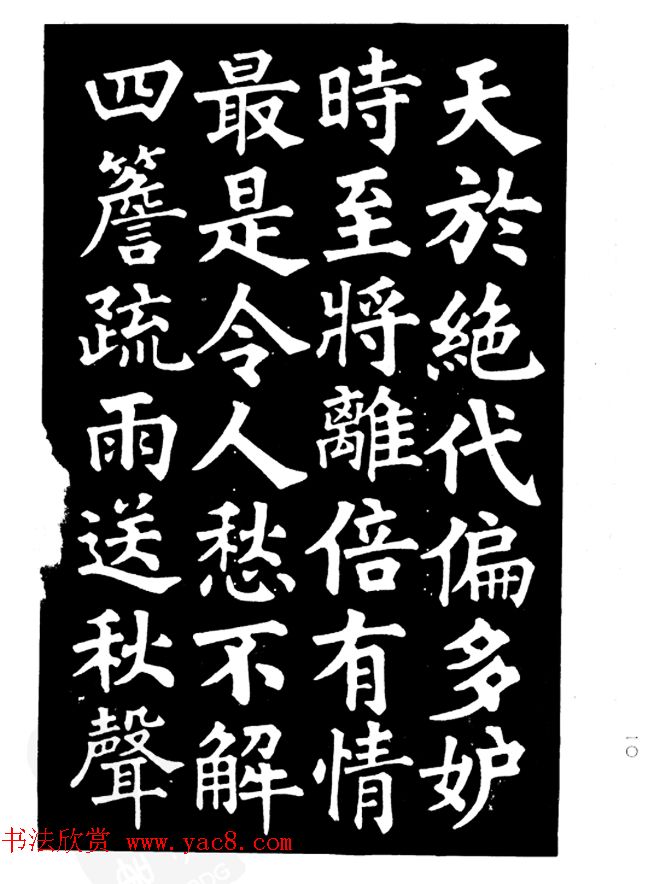 天於絕代偏多妒
時至將離倍有情
最是令人愁不解
四簷疏雨送秋聲
一〇
书法欣赏 www.yac8.com